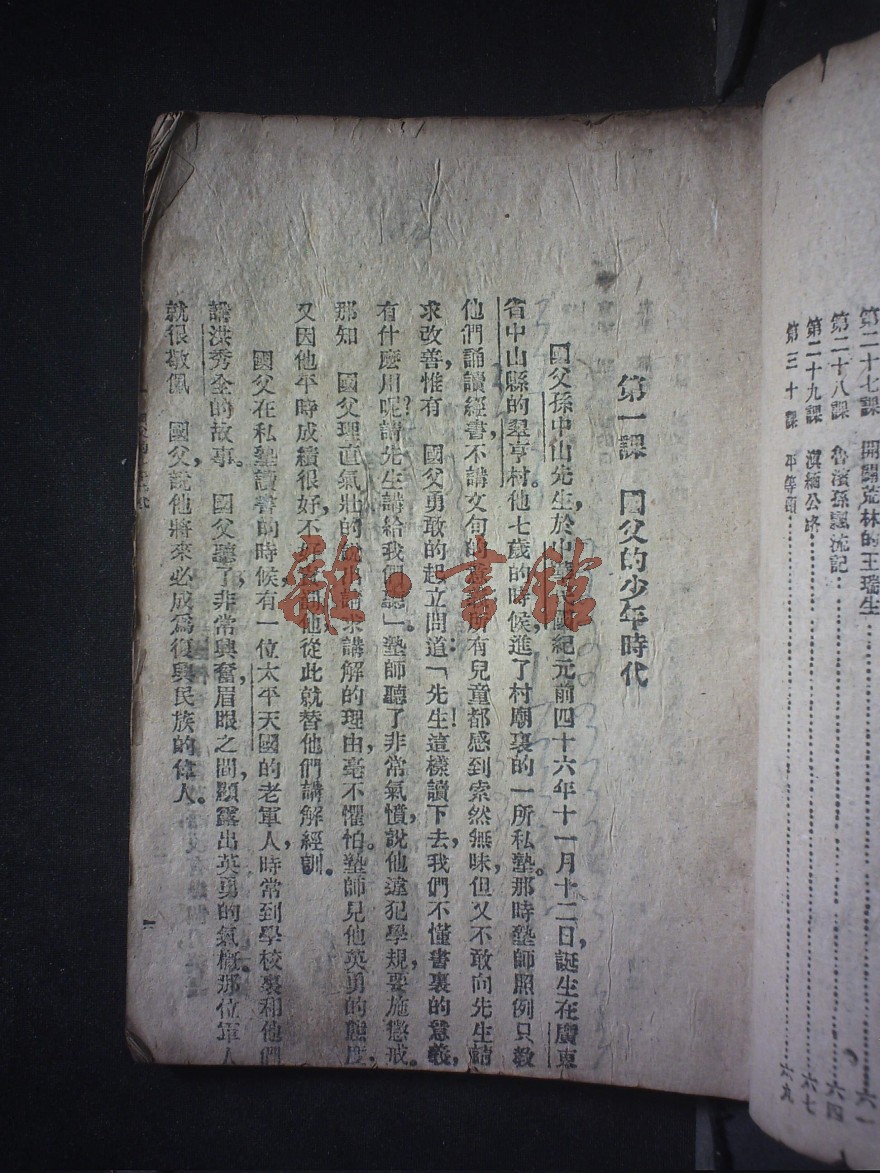 第二十七課 開闢荒林的王瑞生………六一
第二十八課 魯濱孫飄流記………六四
第二十九課 滇緬公路………六七
第三十課 平等頌………六九
第一課 國父的少年時代
國父孫中山先生,於中華民國紀元前四十六年十一月十二日,誕生在廣東
省中山縣的翠亨村。他七歲的時候,進了村廟裏的一所私塾。那時塾師照例只教
他們誦讀經書,不講文句的意義,所有兒童都感到索然無味,但又不敢向先生請
求改善。惟有 國父勇敢的起立問道:「先生!這樣讀下去,我們不懂書裏的意義,
有什麼用呢?請先生講給我們聽」塾師聽了非常氣憤,說他違犯學規,要施懲戒。
那知 國父理直氣壯的說出請求講解的理由,毫不懼怕。塾師見他英勇的態度,
又因他平時成績很好,不好責罰他,從此就替他們講解經訓。
國父在私塾讀書的時候,有一位太平天國的老軍人,時常到學校裏和他們
講洪秀全的故事。 國父聽了,非常興奮,眉眼之間,顯露出英勇的氣概。那位軍人
就很敬佩 國父,說他將來必成爲復興民族的偉人。
一
雜·書館